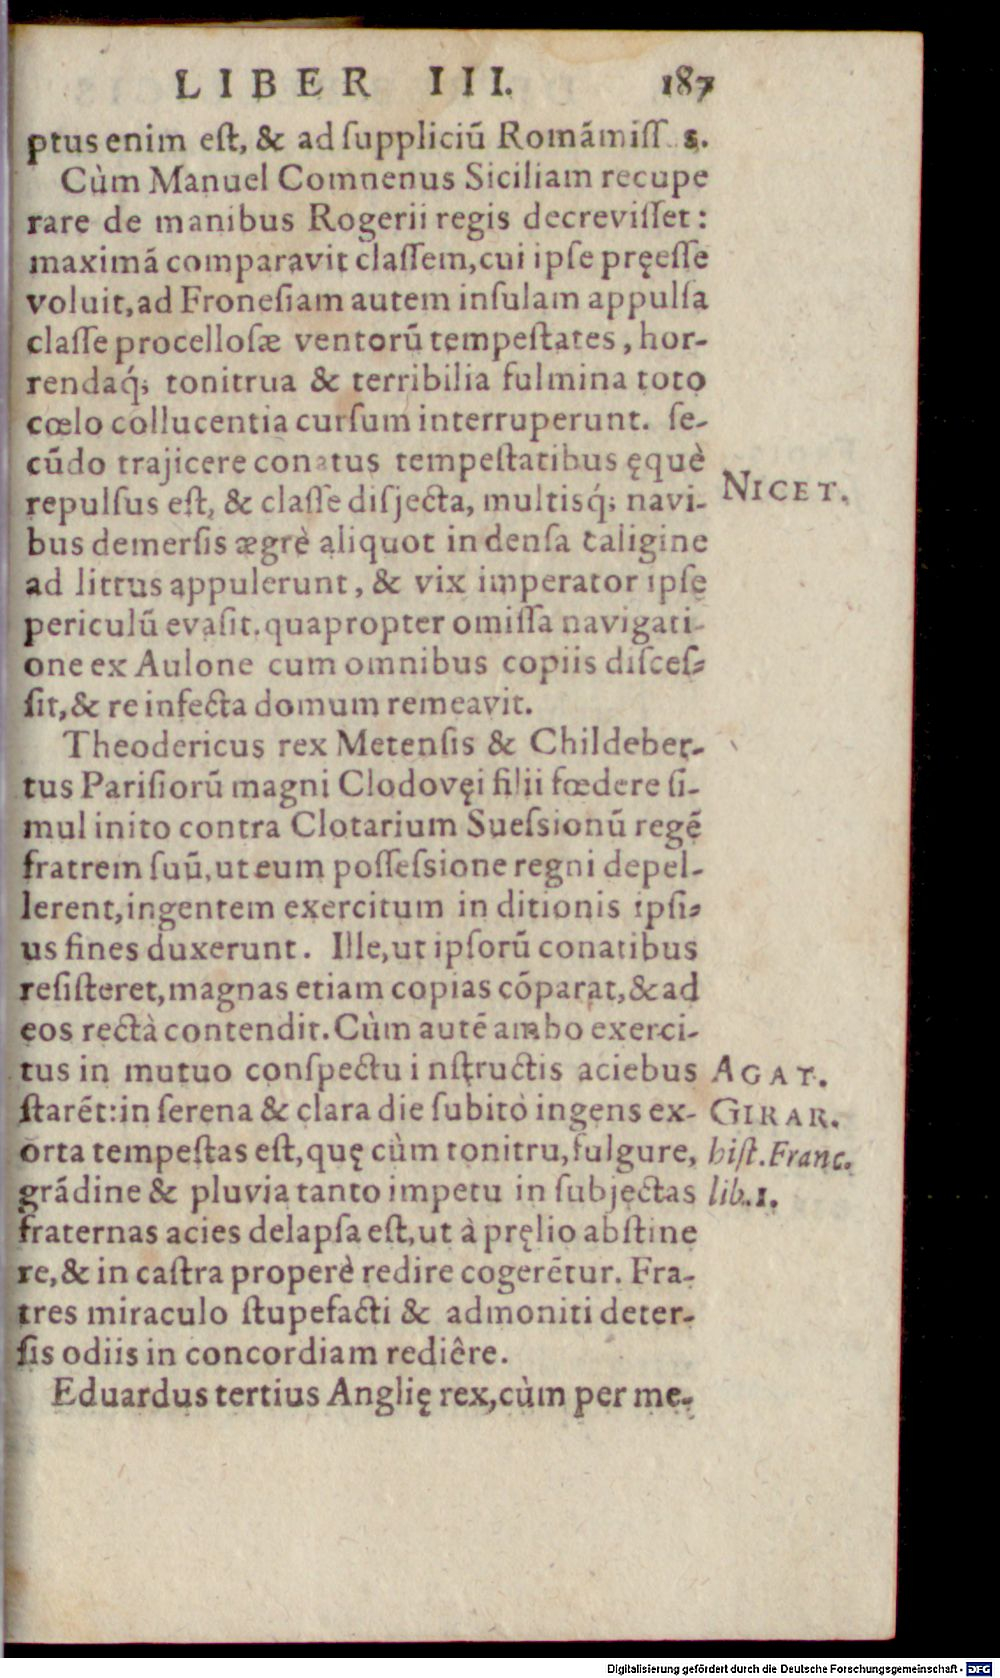 LIBER III. 187
ptus enim eſt, & ad ſuppliciū Romāmiſſ s.
Cùm Manuel Comnenus Siciliam recupe
rare de manibus Rogerii regis decreviſſet:
maximā comparavit claſſem,cui ipſe pręeſſe
voluit,ad Froneſiam autem inſulam appulſa
claſſe procelloſæ ventorū tempeſtates, hor-
rendaq́; tonitrua & terribilia fulmina toto
cœlo collucentia curſum interruperunt. ſe-
cūdo trajicere conatus tempeſtatibus ęquè
NICET.
repulſus eſt, & claſſe diſjecta, multisq́; navi-
bus demerſis ægrè aliquot in denſa caligine
ad littus appulerunt, & vix imperator ipſe
periculū evaſit.quapropter omiſſa navigati-
one ex Aulone cum omnibus copiis diſceſ-
ſit,& re infecta domum remeavit.
Theodericus rex Metenſis & Childeber-
tus Pariſiorū magni Clodovęi filii fœdere ſi-
mul inito contra Clotarium Sueſsionū regē
fratrem ſuū,ut eum poſſeſsione regni depel-
lerent,ingentem exercitum in ditionis ipſi-
us fines duxerunt. Ille,ut ipſorū conatibus
reſiſteret,magnas etiam copias cōparat,& ad
eos rectà contendit. Cùm autē ambo exerci-
tus in mutuo conſpectu i nſtructis aciebus
AGAT.
ſtarēt:in ſerena & clara die ſubitò ingens ex-
GIRAR.
orta tempeſtas eſt,quę cùm tonitru,fulgure,
hiſt.Franc.
grādine & pluvia tanto impetu in ſubjectas
lib.1.
fraternas acies delapſa eſt,ut à pręlio abſtine
re,& in caſtra properè redire cogerētur. Fra-
tres miraculo ſtupefacti & admoniti deter-
ſis odiis in concordiam rediêre.
Eduardus tertius Anglię rex,cùm per me-
Digitalisierung gefördert durch die Deutsche Forschungsgemeinschaft - DFG